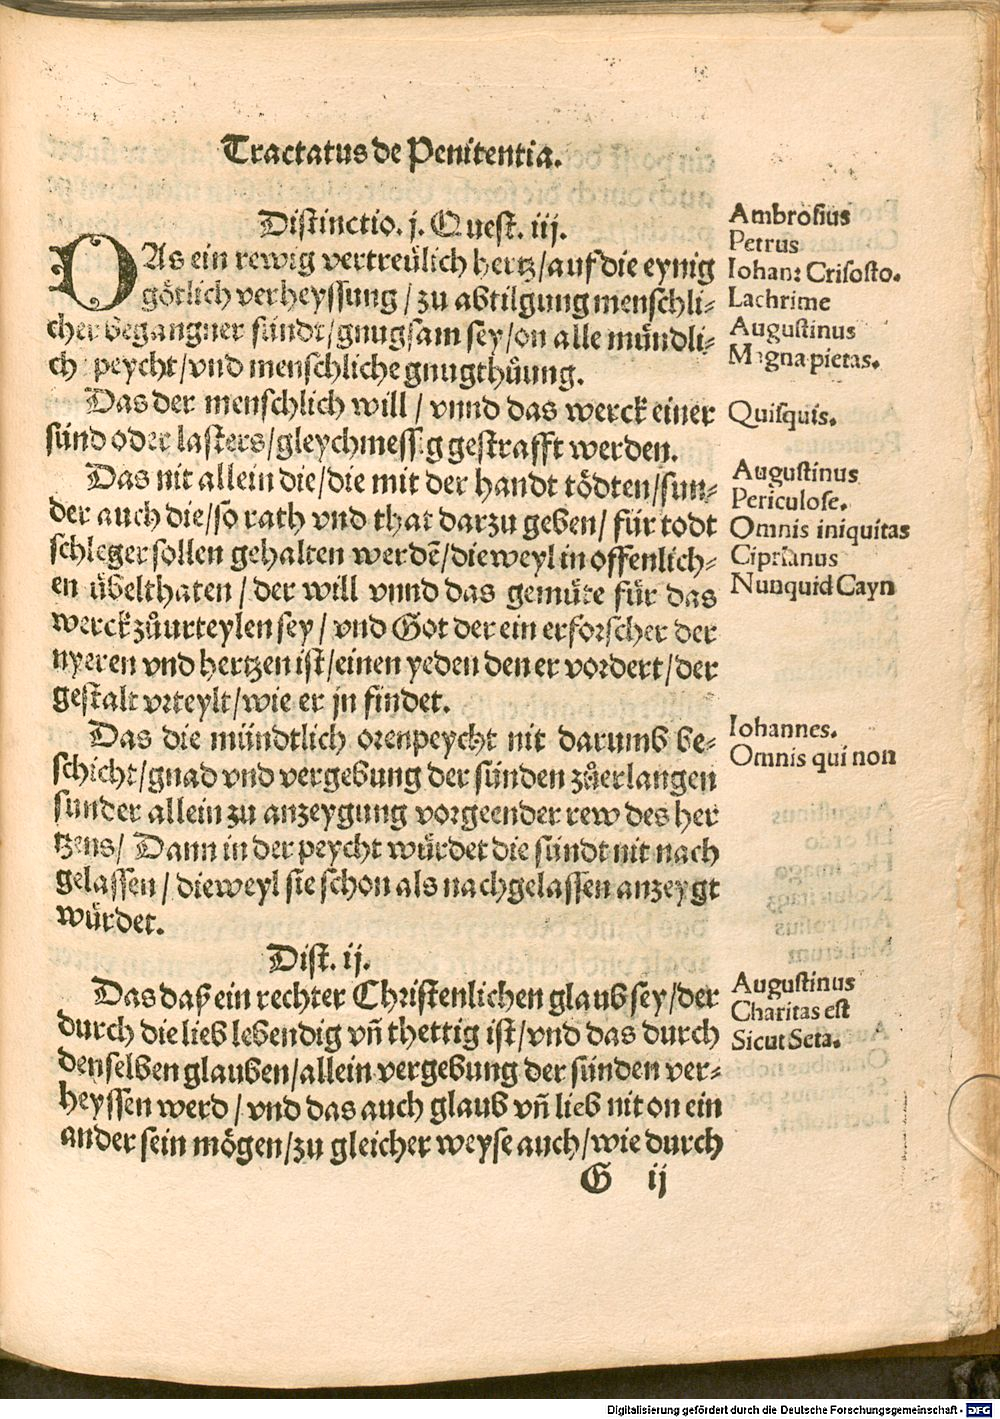 Tractatus de Penitentia.
Distinctio. j. Quest. iij.
DAs ein rewig vertreülich hertz/auf die eynig
götlich verheyssung/zu abtilgung menschli-
cher begangner sündt/gnugsam sey/on alle mündli-
ch peycht/vnd menschliche gnugthůung.
Das der menschlich will/vnnd das werck einer
sünd oder lasters/gleychmessig gestrafft werden.
Das nit allein die/die mit der handt tödten/sun-
der auch die/so rath vnd that darzu geben/für todt
schleger sollen gehalten werdē/dieweyl in offenlich-
en übelthaten/der will vnnd das gemüte für das
werck zůurteylen sey/vnd Got der ein erforscher der
nyeren vnd hertzen ist/einen yeden den er vordert/der
gestalt vrteylt/wie er jn findet.
Das die mündtlich orenpeycht nit darumb be-
schicht/gnad vnd vergebung der sünden zůerlangen
sunder allein zu anzeygung vorgeender rew des her
tzens/Dann in der peycht würdet die sündt nit nach
gelassen/dieweyl sie schon als nachgelassen anzeygt
würdet.
Dist. ij.
Das daß ein rechter Christenlichen glaub sey/der
durch die lieb lebendig vn̄ thettig ist/vnd das durch
denselben glauben/allein vergebung der sünden ver-
heyssen werd/vnd das auch glaub vn̄ lieb nit on ein
ander sein mögen/zu gleicher weyse auch/wie durch
G ij
Ambrosius
Petrus
Iohan: Crisosto.
Lachrime
Augustinus
Magna pietas.
Quisquis.
Augustinus
Periculose.
Omnis iniquitas
Ciprianus
Nunquid Cayn
Iohannes.
Omnis qui non
Augustinus
Charitas est
Sicut Seta.
Digitalisierung gefördert durch die Deutsche Forschungsgemeinschaft - DFG